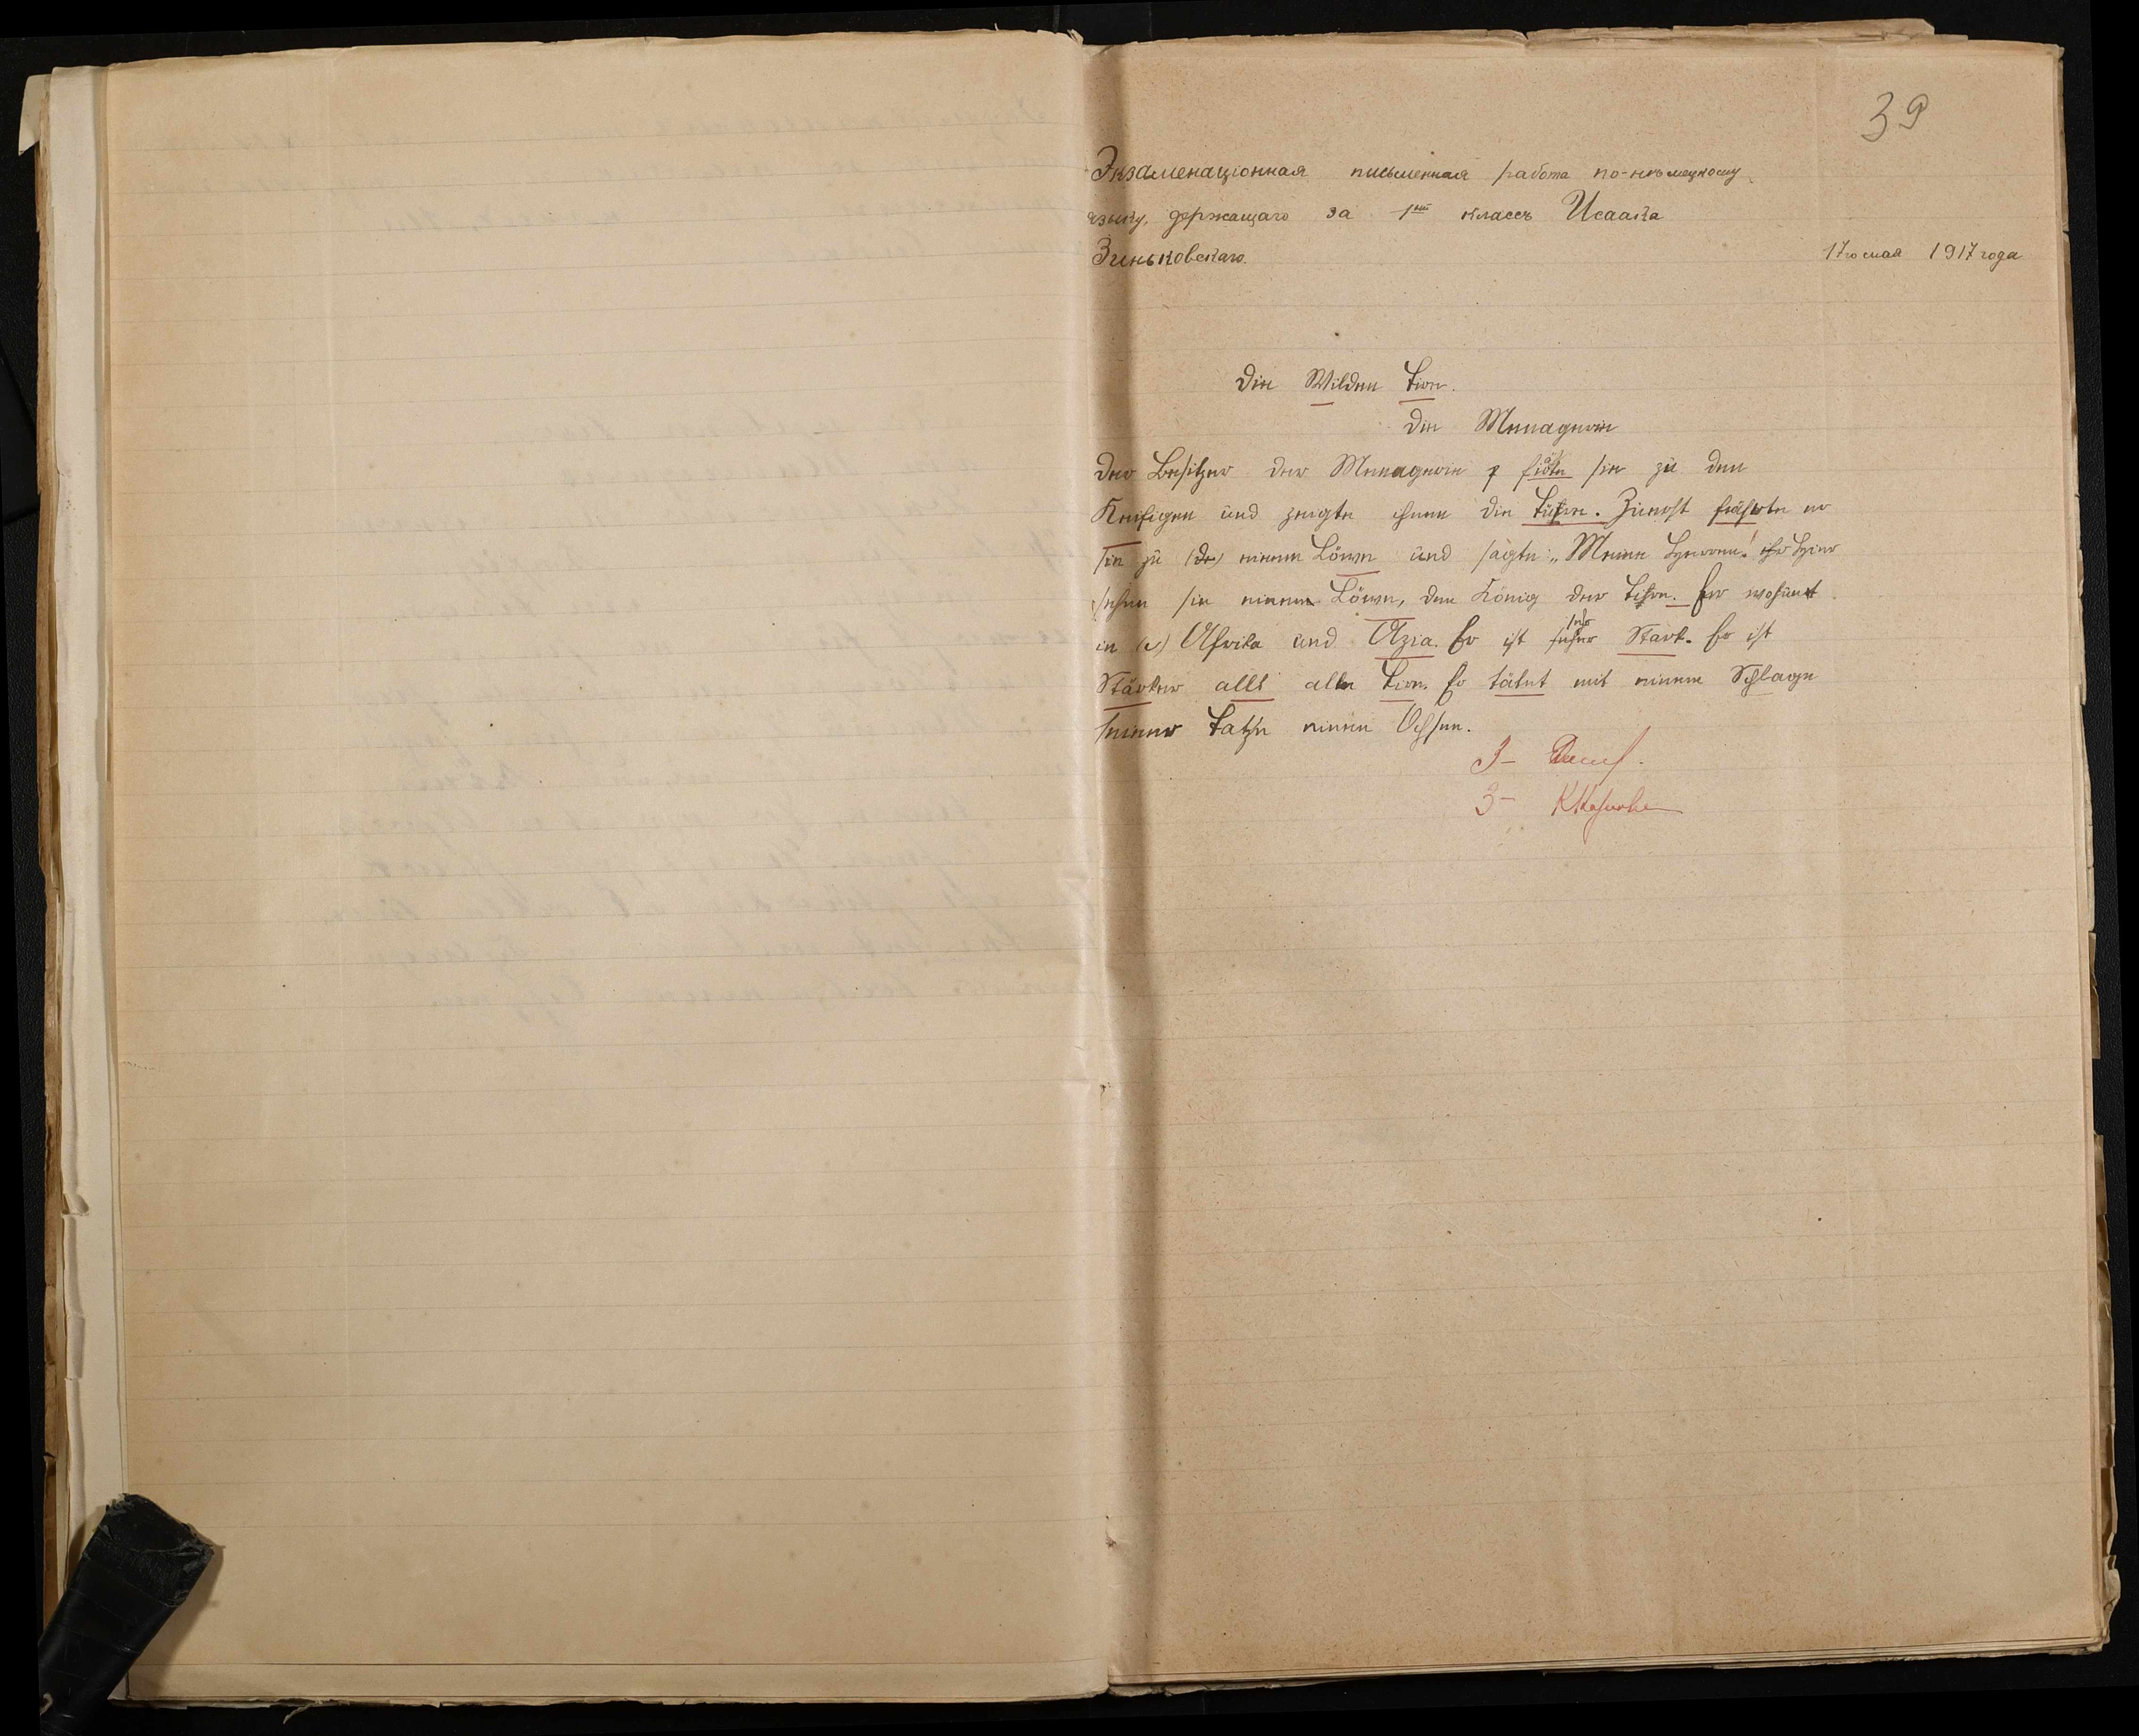 39
Экзаменаціонная письменная работа по-нѣмецкому
языку, держащаго за 1ый классъ Исаака
Зиньковскаго. 17го мая 1917 года
Die Wilden Tier.
Die Menagerie
Der Besitzer der Menagerie sie zu den
Kefigen und zeigte ihnen die Zuerst er
sie zu (de) einem Löwen und sagte: „Meine Hier
sehen sie einen Löwen, den König der Er wohnt
in Afrika und Azia. Er ist sehr Stark. Er ist
Stärker alls alle Tier. Er tätet mit einem Schlage
seiner Tatze einen Ochsen.
3-
3-